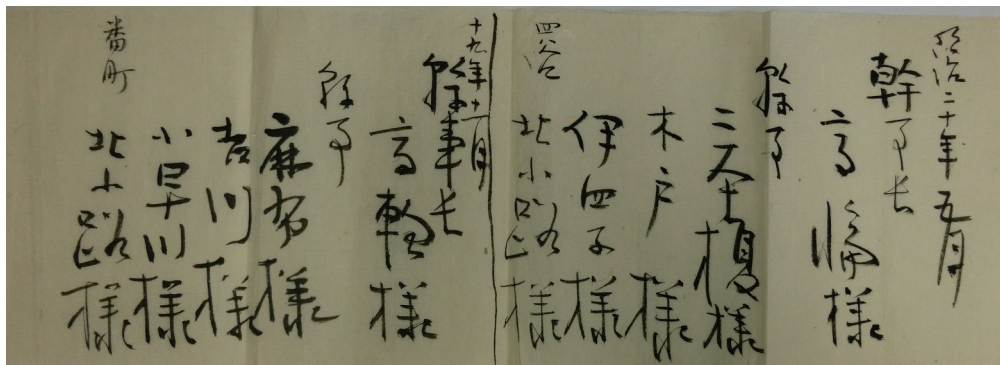 明治二十年五月
幹事長
高輪様
幹事
二本榎様
木戸様
伊皿子様
四谷
北小路様
十九年十一月
幹事長
高輪様
幹事
麻布様
吉川様
小早川様
番町
北小路様